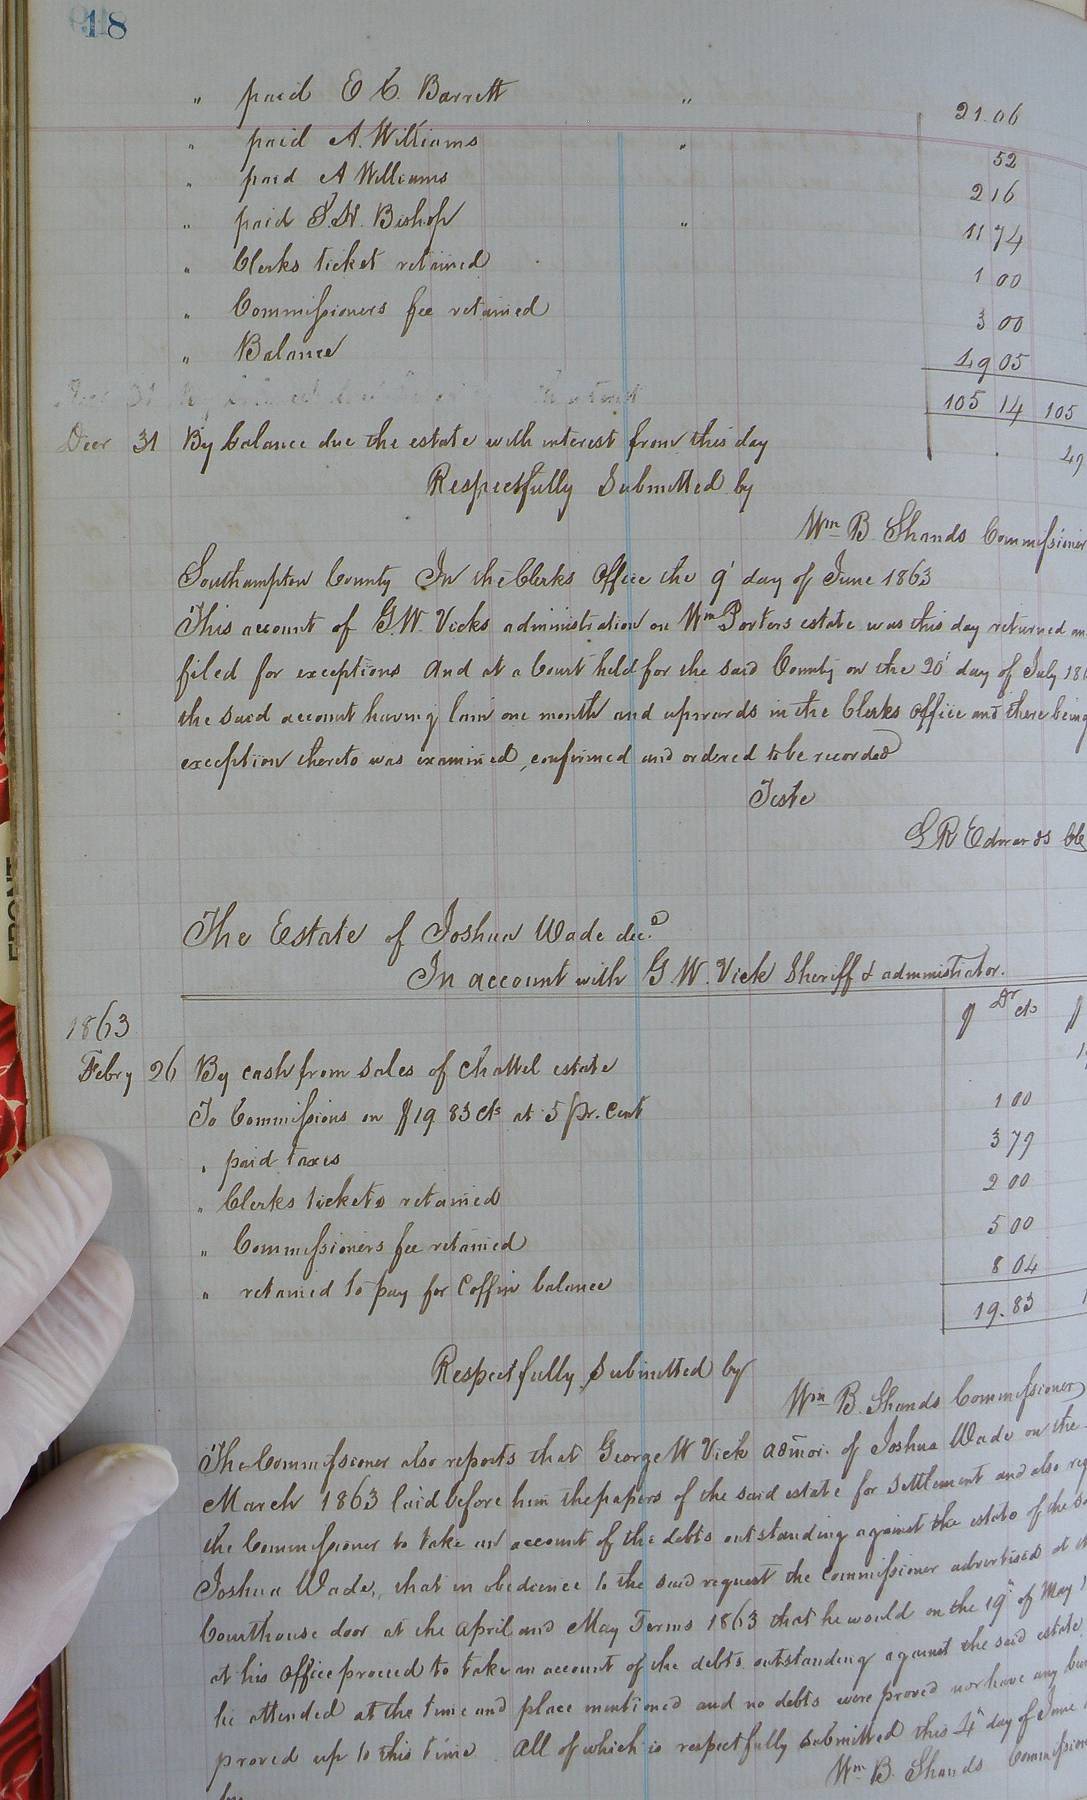 18
" paid E C. Barrett " 21.06
" paid A. Williams " 52
" paid A Williams 2 16
" paid S. W. Bishop " 11 74
" Clerks ticket retained 1 00
" Commissioners fee retained 3 00
" Balance 49 05
105 14 105
Decr 31 By balance due the estate with interest from this day 49
Respectfully Submitted by
Wm B Shands Commissioner
Southampton County In the Clerks Office the 9' day of June 1863
This account of G. W. Vicks administration on Wm Porters estate was this day returned
filed for exceptions And at a Court held for the said County on the 20' day of July
the said account having lain one month and upwards in the Clerks office and there being
exception thereto was examined, confirmed and ordered to be recorded
Teste
L R Edwards Cle
The Estate of Joshua Wade decd
In account with G. W. Vick Sheriff & administrator.
$ Dr cts $
1863
Febry 26 By cash from sales of chattel estate
To Commissions on $19 83 cts at 5 Pr. Cent 1 00
" paid taxes 3 79
" Clerks tickets retained 2 00
" Commissioners fee retained 5 00
" retained to pay for Coffin balance 8 04
19.83
Respectfully Submitted by
Wm B. Shands Commissioner
The Commissioner also reports that George W Vick admor. of Joshua Wade on the
March 1863 laid before him the papers of the said estate for settlement and also
the Commissioner to take an account of the debts outstanding against the estate of the
Joshua Wade, that in obedience to the said request the Commissioner advertised at
Courthouse door at the April and May Terms 1863 that he would on the 19th of May
at his office proceed to take an account of the debts outstanding against the said estate
he attended at the time and place mentioned and no debts were proved nor have any
proved up to this time. All of which is respectfully submitted this 4th day of June
Wm B. Shands Commission